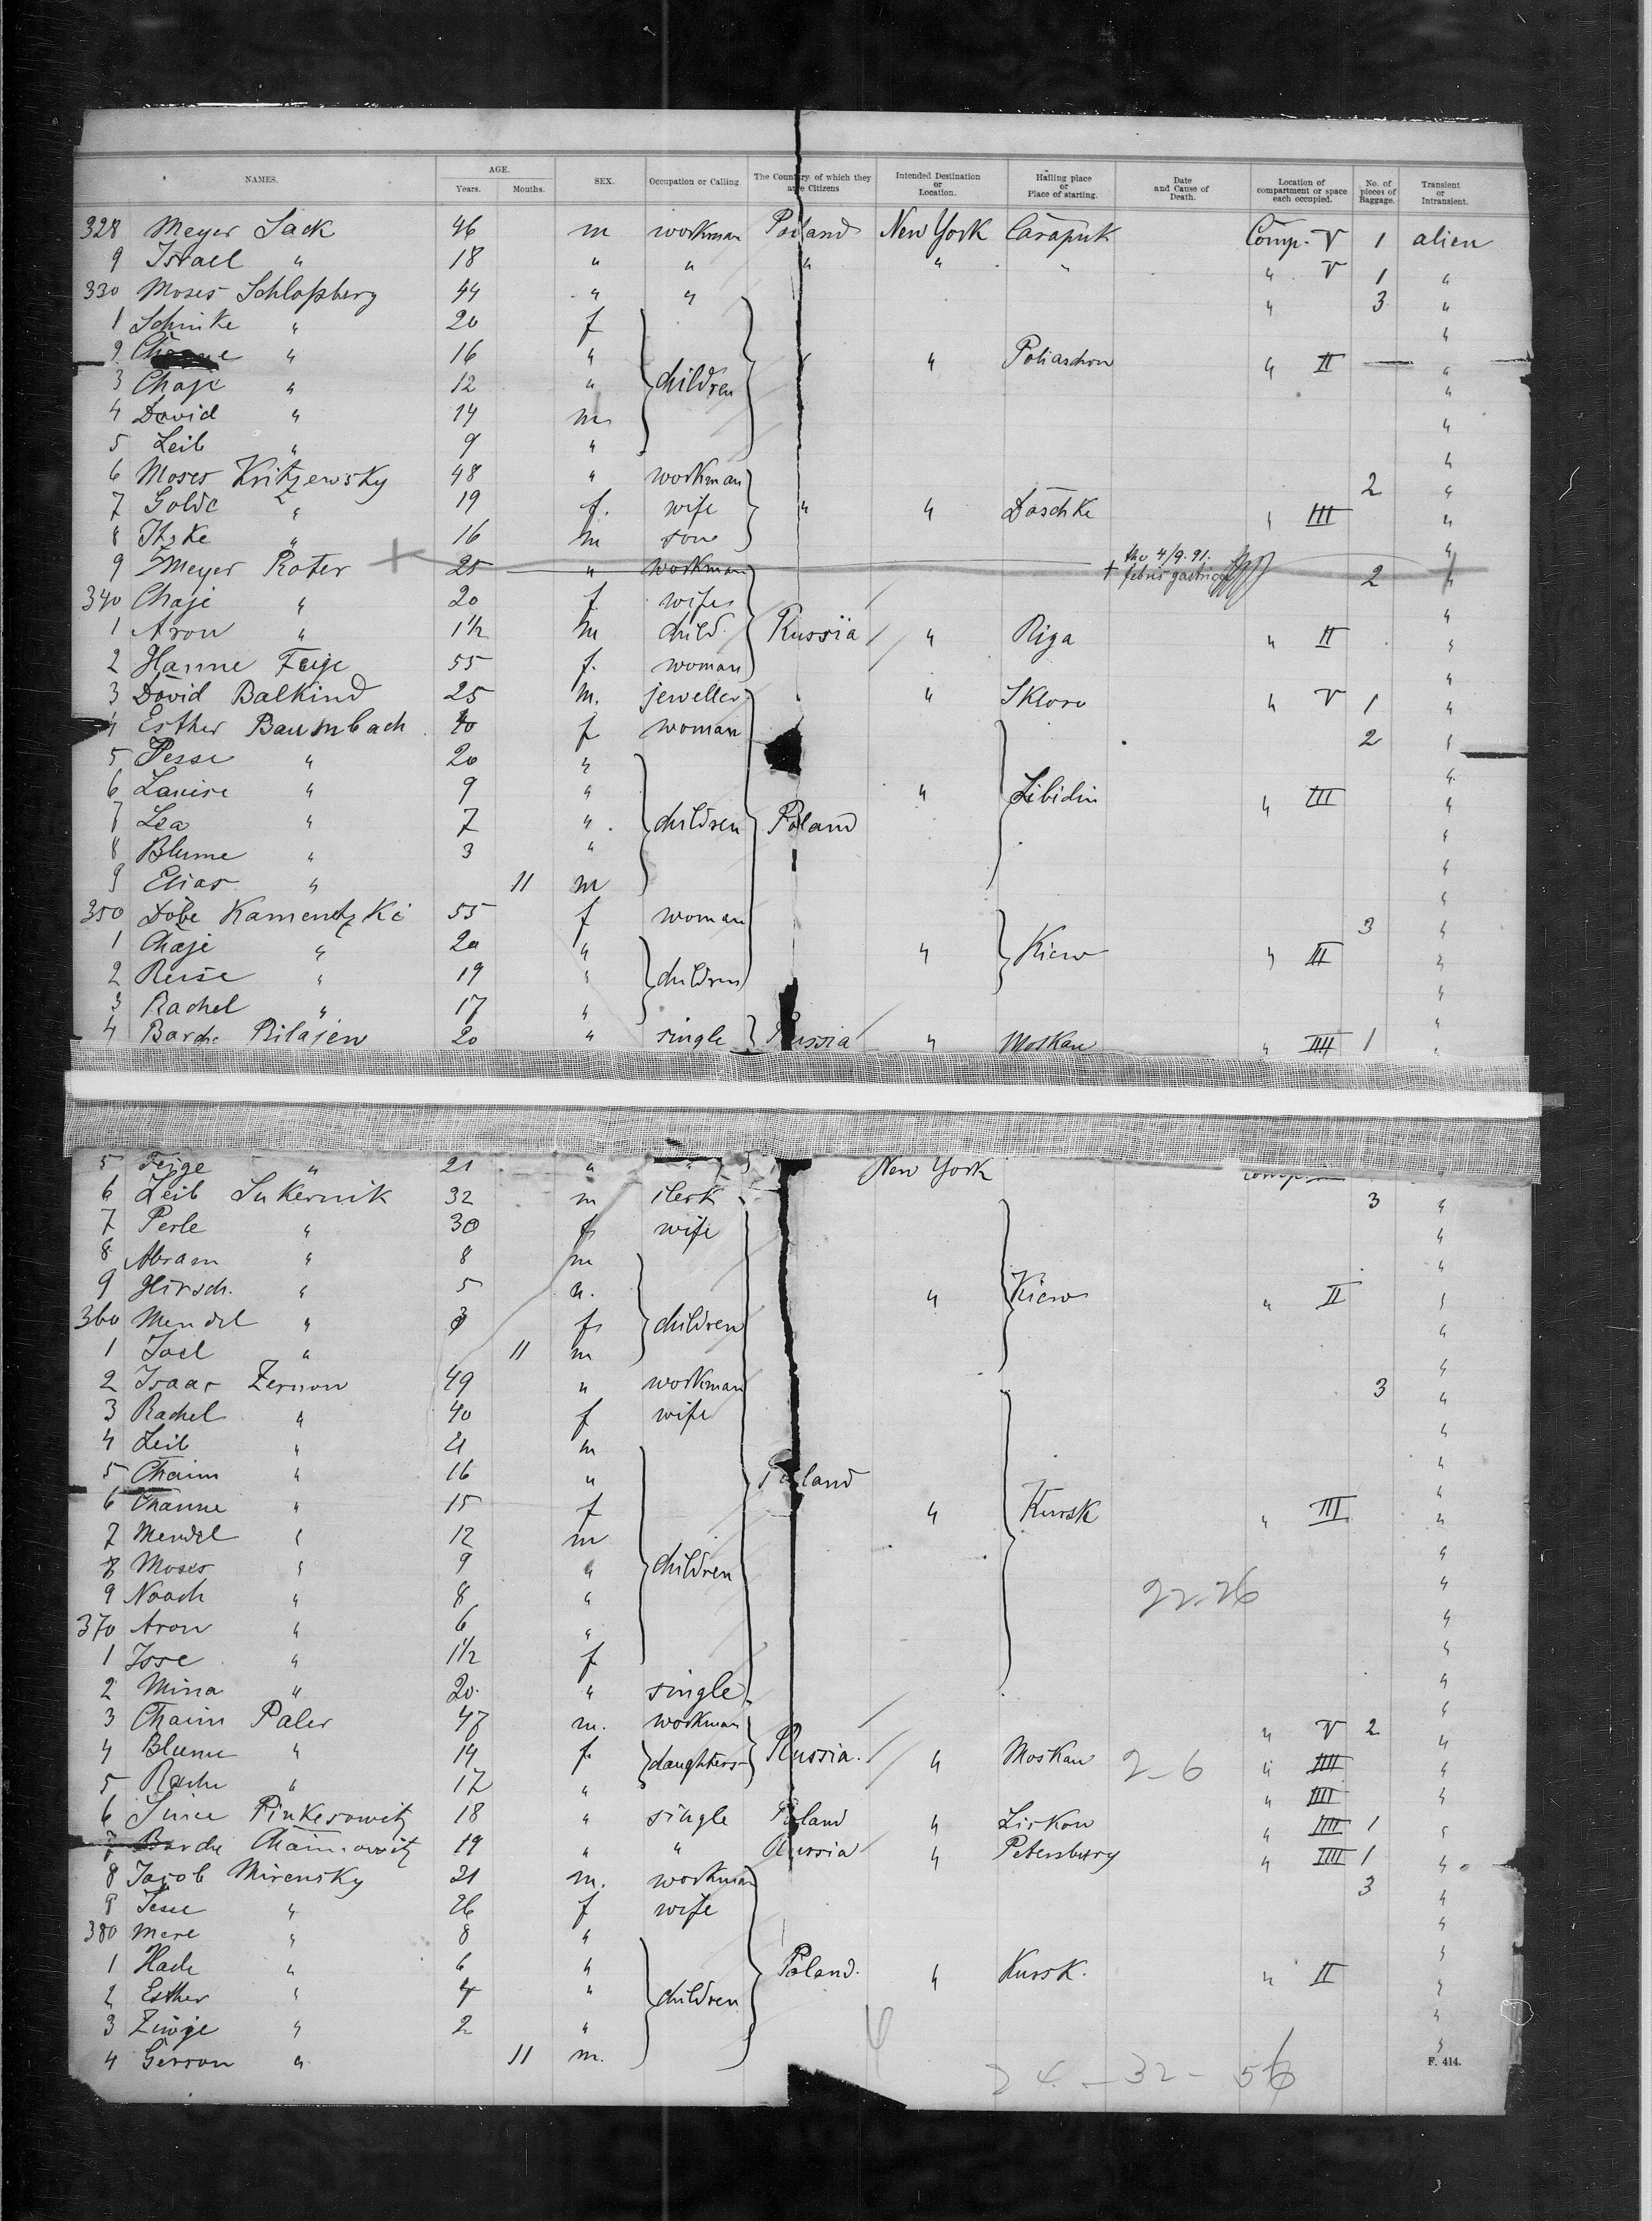 NAMES. AGE. Years. Months. SEX. Occupation or Calling. The Country of which they are Citizens Intended Destination or Location. Hailing place or Place of starting. Date and Cause of Death. Location of compartment or space each occupied. No. of pieces of Baggage. Transient or Intransient.
328 Meyer Sack 46 m workman Poland New York Carapuk Comp. V 1 alien
9 Israel " 18 " " " " " " V 1 "
330 Moses Schloßberg 44 " " " 3 "
1 Schmke " 20 f "
2 " 16 " children " " Poliaschon " II "
3 Chaje " 12 " "
4 David " 14 m "
5 Leib " 9 " "
6 Moses Kritzewsky 48 " workman 2 "
7 Golde " 19 f. wife " " Daschke " III "
8 Itzke " 16 m son "
9 Meyer Roter 25 " workman the 4/9.91. † febris gastrica 2 "
340 Chaje " 20 f wife "
1 Aron " 1½ m child. Russia " Riga " II "
2 Hanne Feige 55 f. woman "
3 David Balkind 25 m. jeweller " Sklovo " V 1 "
4 Esther Baumbach 40 f woman 2 "
5 Pesse " 20 " "
6 Lanise " 9 " " Libidin " III "
7 Lea " 7 " children Poland "
8 Blume " 3 " "
9 Elias " 11 m "
350 Dobe Kamentzki 55 f woman 3 "
1 Chaje " 20 " " Kiew " III "
2 Reise " 19 " children "
3 Rachel " 17 " "
4 Barche Bilajew 20 " single Russia " Moskau " IIII 1 "
5 Feige " 21 " " New York "
6 Leib Sukernik 32 m clerk 3 "
7 Perle " 30 f wife "
8 Abram " 8 m "
9 Hirsch. " 5 ". " Kiew " II "
360 Mendel " 3 f children "
1 Joel " 11 m "
2 Isaac Zernow 49 " workman 3 "
3 Rachel " 40 f wife "
4 Leib " 21 m "
5 Chaim " 16 " Poland "
6 Channe " 15 f " Kursk " III "
7 Mendel " 12 m "
8 Moses " 9 " children "
9 Noach " 8 " 22-26 "
370 Aron " 6 " "
1 Josse " 1½ f "
2 Mina " 20. " single "
3 Chaim Paler 47 m. workman " V 2 "
4 Blume " 14 f daughters Russia. " Moskau 2-6 " IIII "
5 Rache " 17 " " IIII "
6 Sime Pinkesowitz 18 " single Poland " Liskow " IIII 1 "
7 Barche Chaimowitz 19 " " Russia " Petersburg " IIII 1 "
8 Jacob Mirensky 21 m. workman 3 "
9 " 26 f wife "
380 Mere " 8 " "
1 Hade " 6 " Poland. " Kursk. " II "
2 Esther " 4 " children "
3 Zwije " 2 " "
4 Gerson " 11 m. "
24 - 32 - 56
F. 414.